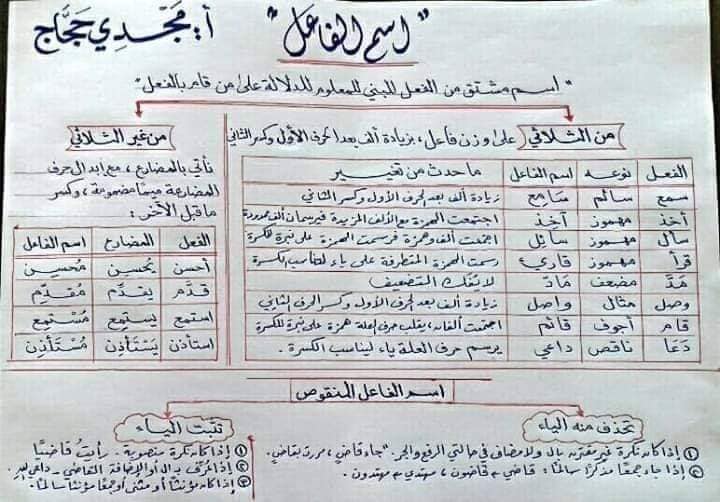 "اسم الفاعل" أ. مجدي حجاج
"اسم مشتق من الفعل المبني للمعلوم للدلالة على من قام بالفعل"
من الثلاثي على وزن فاعل، بزيادة ألف بعد الحرف الأول وكسر الثاني
الفعل نوعه اسم الفاعل ما حدث من تغيير
سمع سالم سَامِع زيادة ألف بعد الحرف الأول وكسر الثاني
أخذ مهموز آخِذ اجتمعت الهمزة مع الألف المزيدة فيرسمان ألف ممدودة
سأل مهموز سَائِل اجتمعت ألف وهمزة فرسمت الهمزة على نبرة للكسرة
قرأ مهموز قارِئ رسمت الهمزة المتطرفة على ياء لتناسب الكسرة
مَدَّ مضعف مَادّ لا يُفك التضعيف
وصل مثال واصل زيادة ألف بعد الحرف الأول وكسر الحرف الثاني
قام أجوف قائم اجتمعت ألفان، يقلب حرف العلة همزة على نبرة للكسرة
دَعَا ناقص داعي يرسم حرف العلة ياء ليناسب الكسرة.
من غير الثلاثي
نأتي بالمضارع، مع إبدال حرف
المضارعة ميمًا مضمومة، وكسر
ما قبل الآخر:
الفعل المضارع اسم الفاعل
أحسن يُحسِن مُحسِن
قدَّم يقدِّم مُقدِّم
استمع يستمِع مُسْتمِع
استأذن يَسْتَأذِن مُسْتَأذِن
اسم الفاعل المنقوص
تحذف منه الياء
① إذا كان نكرة غير مقترنة بال ولا مضاف في حالتي الرفع والجر. "جاء قاضٍ، مررت بقاضٍ.
② إذا جاء جمعًا مذكرًا سالمًا: قاضي ← قاضون، مهتدي ← مهتدون.
تثبت الياء
① إذا كان نكرة منصوبة. رأيتُ قاضيًا
② إذا عُرِّف بـ ال أو الإضافة القاضي - داعي
③ إذا كان مؤنثًا أو مثنى أو جمعًا مؤنثًا سالمًا.